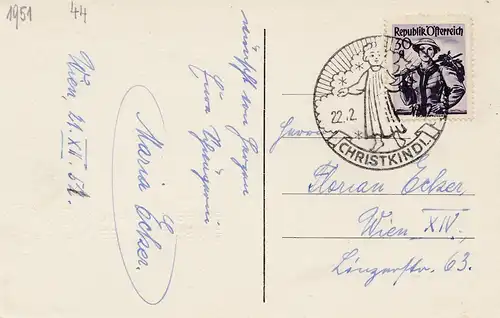 1951
44
Wien, 21. XII. 51.
wünscht von Herzen
Eure
Maria Ecker.
Republik Österreich
30
22.2.
CHRISTKINDL
Herrn
Florian Ecker
Wien XIV.
Linzerstr. 63.